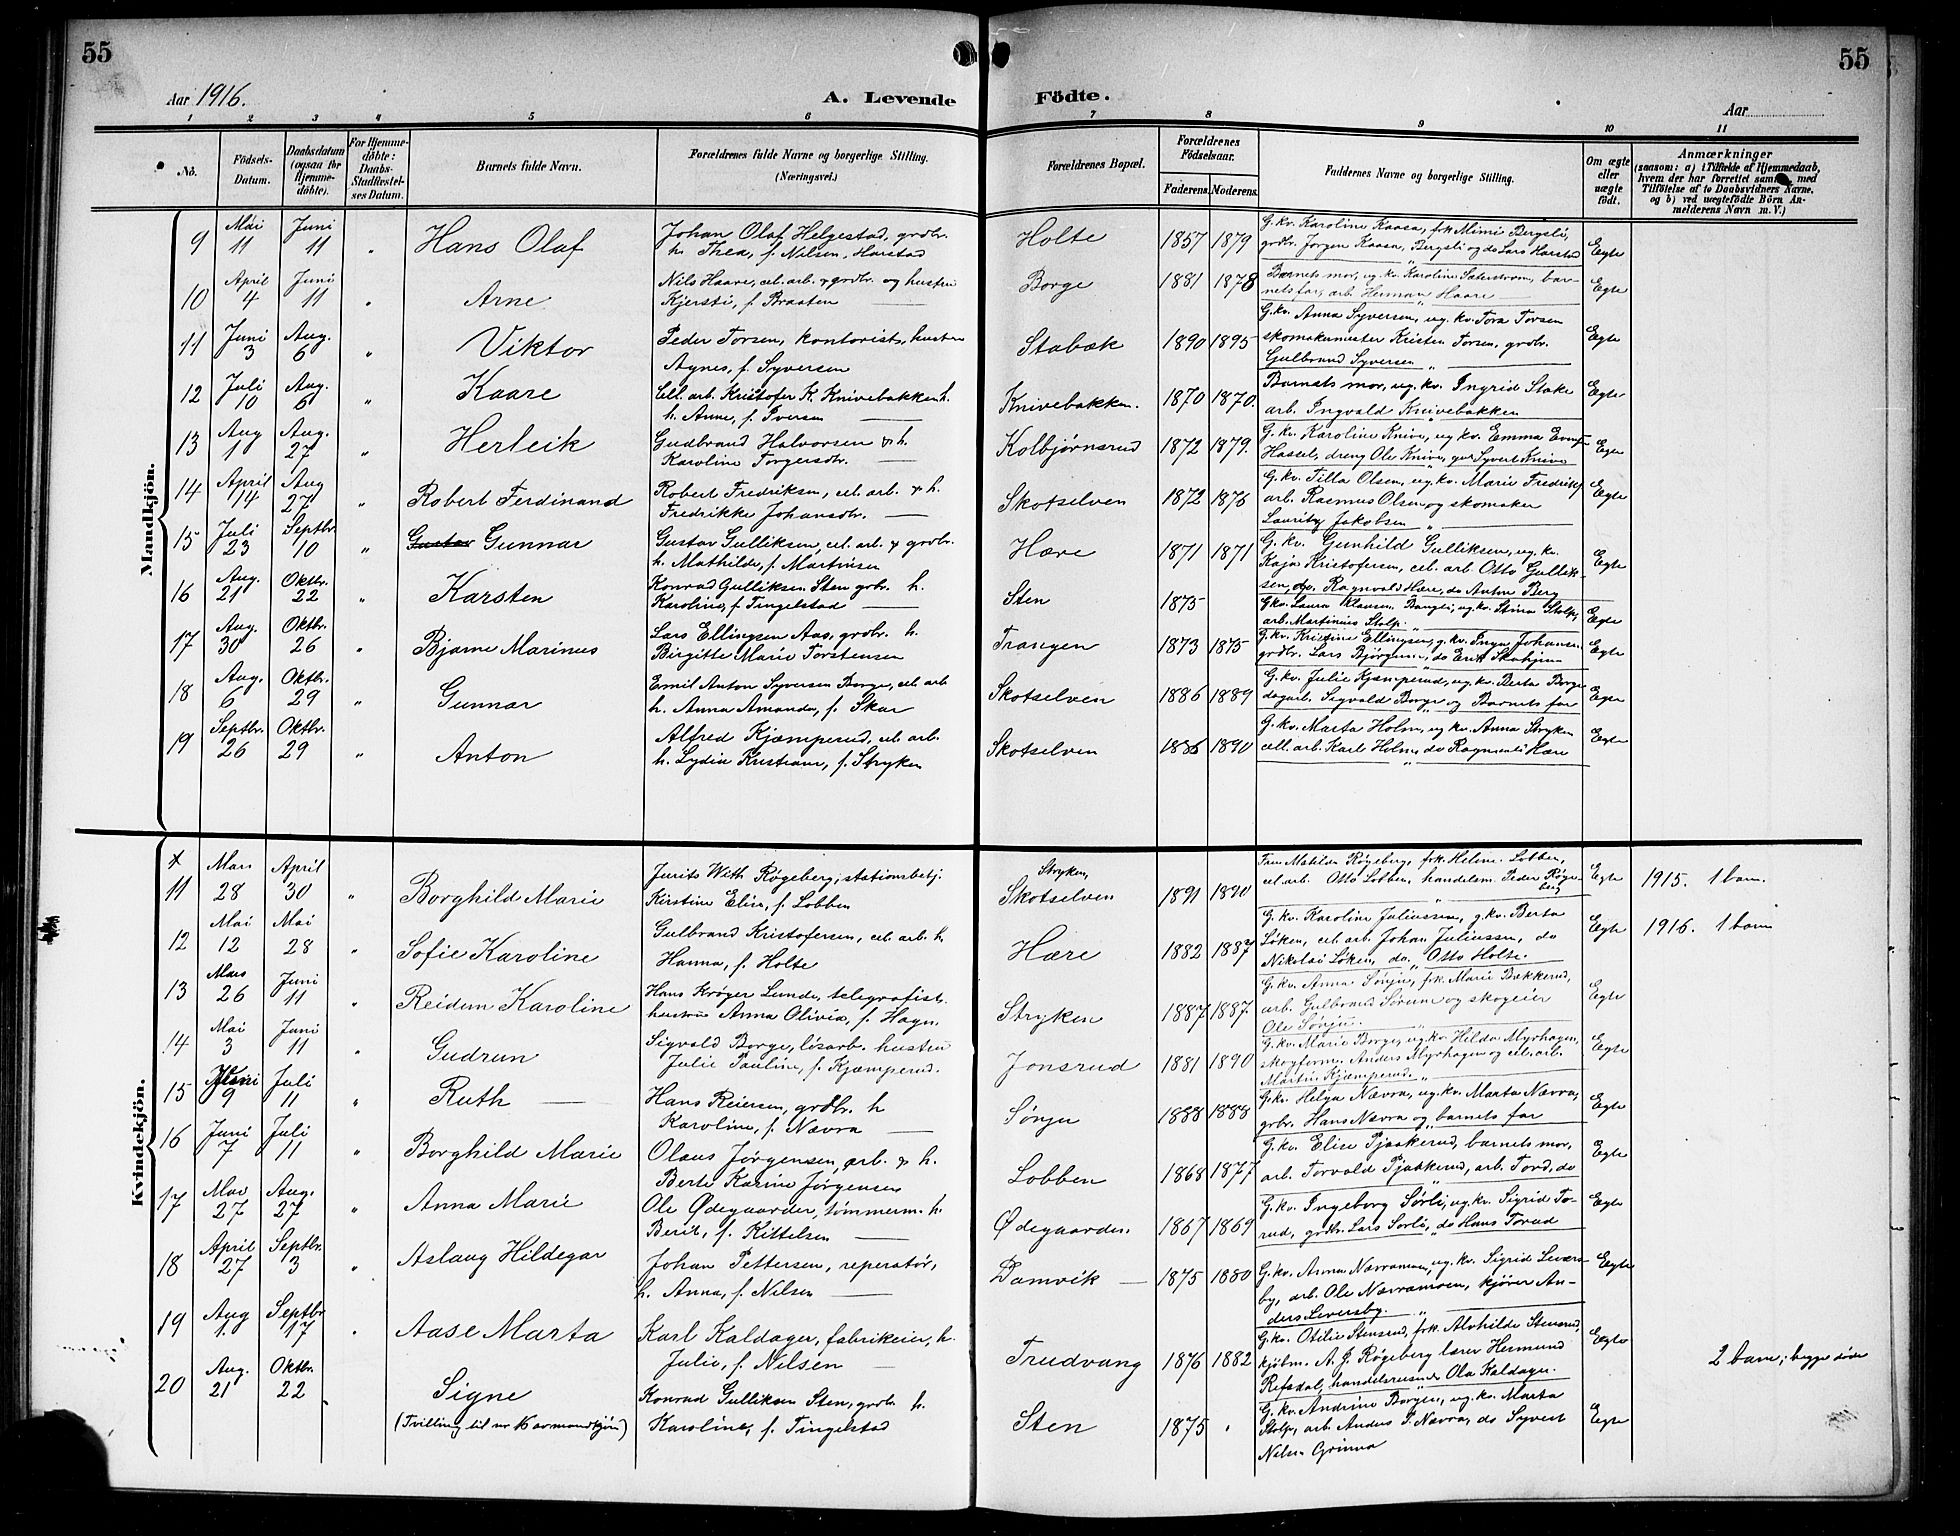 55
55
Aar 1916.
A. Levende
Födte.
Aar
1 2 3 4 5 6 7 8 9 10 11
No.
Födsels-
Datum.
Daabsdatum
(ogsaa for
Hjemme-
döbte).
For Hjemme-
döbte:
Daabs-
Stadfæstel-
ses Datum.
Barnets fulde Navn.
Forældrenes fulde Navne og borgerlige Stilling.
(Næringsvei.)
Forældrenes Bopæl.
Forældrenes
Födselsaar.
Faderens.
Moderens.
Faddernes Navne og borgerlige Stilling.
Om ægte
eller
uægte
födt.
Anmærkninger
(saasom: a) i Tilfælde af Hjemmedaab,
hvem der har forrettet samme, med
Tilföielse af to Daabsvidners Navne.
og b) ved uægtefödte Börn An-
melderens Navn m. V.)
Mandkjön.
9 Mai 11 Juni 11 " Hans Olaf
Johan Olaf Helgestad, grdbr.
h. Thea, f. Nilsen, Harstad
Holte 1857 1879
G. kv. Karoline Kaasa, frk Mimi Bergsli,
grdbr. Jørgen Kaasa, Bergsli og do Lars Harstad
Egte
10 April 4 Juni 11 " Arne
Nils Haare, cel. arb. & grdbr. og hustru
Kjersti, f. Braaten
Borge 1881 1878
Barnets mor, ug. kv. Karoline Sæterstrøm, bar-
nets far, arb. Herman Haare
Egte
11 Juni 3 Aug. 6 " Viktor
Peder Torsen, kontorist, hustru
Agnes, f. Syversen
Stabæk 1890 1895
G. kv. Anna Syversen, ug. kv. Tora Torsen
skomakermester Kristen Torsen, grdbr.
Gulbrand Syversen
Egte
12 Juli 10 Aug. 6 " Kaare
Cell. arb. Kristofer K. Knivebakken h.
h. Anne, f. Iversen
Knivebakken. 1870 1870.
Barnets mor, ug. kv. Ingrid Stake
arb. Ingvald Knivebakken
Egte
13 Aug 1 Aug. 27 " Herleik
Gudbrand Halvorsen & h.
Karoline Torgersdtr.
Kolbjørnsrud 1872 1879.
G. kv. Karoline Knive, ug kv. Emma
Hassel, dreng Ole Knive, Syvert Knive
Egte
14 April 14 Aug 27 " Robert Ferdinand
Robert Fredriksen, cel. arb. & h.
Fredrikke Johansdtr.
Skotselven 1872 1876
G. kv. Tilla Olsen, ug. kv. Marie Fredriks
arb. Rasmus Olsen og skomaker
Lauritz Jakobsen
Egte
15 Juli 23 Septbr 10 " Gustav Gunnar
Gustav Gulliksen, cel. arb. & grdbr.
h. Mathilde, f. Martinsen
Hære 1871 1871
G. kv. Gunhild Gulliksen, ug. kv.
Kaja Kristofersen, cel. arb. Otto Gullik-
sen, do. Ragnvald Hære, do Anton Berg
Egte
16 Aug. 21 Oktbr. 22 " Karsten
Konrad Gulliksen Sten grbr. h.
Karoline, f. Tingelstad
Sten 1875
G. kv. Laura Klausen ug. kv. Stina Stolp,
arb. Martinius Stolp.
Egte
17 Aug. 30 Oktbr. 26 " Bjarne Marinus
Lars Ellingsen Aas, grdbr. h.
Birgitte Marie Torstensen
Trangen 1873 1875
G. kv. Kristine Ellingsen, g. kv. Inga Johansen
grdbr. Lars Bjørgum, do Erik
Egte
18 Aug. 6 Oktbr. 29 " Gunnar
Emil Anton Syversen Borge, cel. arb
h. Anna Amanda, f. Skar
Skotselven 1886 1889
G. kv. Julie Kjæmperud, ug. kv. Berta Borge
dagarb. Sigvald Borge og Barnets far
Egte
19 Septbr. 26 Oktbr. 29 " Anton
Alfred Kjæmperud, cel. arb.
h. Lydia Kristiane, f. Stryken
Skotselven 1886 1890
G. kv. Marta Holm, ug kv. Anna Stryken
cell. arb. Karl Holm, do Hære
Egte
Kvindekjön.
x
11 Mars 28 April 30 " Borghild Marie
Jurits With Røgeberg, stationsbetj.
Kirstine Elise, f. Lobben
Stryken,
Skotselven 1891 1890
Fru Matilda Røgeberg, frk. Heline Lobben,
cel. arb. Otto Lobben, handelsm. Peder Røge-
berg
Egte 1915. 1 barn.
12 Mai 12 Mai 28 " Sofie Karoline
Gulbrand Kristofersen, cel. arb. h.
Hanna, f. Holte
Hære 1882 1887
G. kv. Karoline Juliussen, g. kv. Berta
Løken, cel. arb. Johan Juliussen, do
Nikolai Løken, do. Otto Holte.
Egte 1916. 1 barn
13 Mars 26 Juni 11 " Reidun Karoline
Hans Krøger Lunde, telegrafist.
hustru Anna Olivia, f. Hagn.
Stryken 1887 1887
G. kv. Anna Sønju, frk. Marie Bækkerud,
arb. Gulbrand Sørum og skogeier
Ole Sønju.
Egte
14 Mai 3 Juni 11 " Gudrun
Sigvald Borge, løsarb. hustru
Julie Pauline, f. Kjæmperud.
Jonsrud 1881 1890
G. kv. Marie Borge, ug kv. Hilda Myrhagen,
skogform. Anders Myrhagen og cel. arb.
Martin Kjæmperud.
Egte
15 Juni 9 Juli 11 " Ruth
Hans Reiersen, grdbr. h
Karoline, f. Nævra
Sønju 1888 1888
G. kv. Helga Nævra, ug. kv. Marta Nævra,
grbr. Hans Nævra og barnets far
Egte
16 Juni 7 Juli 11 " Borghild Marie
Olaus Jørgensen, arb. & h.
Berte Karine Jørgensen
Lobben 1868 1877
G. kv. Elise Pjaakerud, barnets mor,
arb. Torvald Pjaakerud, arb. Tord, do
Egte
17 Mai 27 Aug. 27 " Anna Marie
Ole Ødegaarden, tømmerm. h
Berit, f. Kittelsen
Ødegaarden. 1867 1869
G. kv. Ingeborg Sørli, ug. kv. Sigrid To-
rud, grdbr. Lars Sørli, do Hans Torud
Egte
18 April 27 Septbr. 3 " Aslaug Hildegar
Johan Pettersen, reperatør,
h. Anna, f. Nilsen
Damvik 1875 1880
G. kv. Anna Nævramoen, ug. kv. Sigrid Levers-
by, arb. Ole Nævramoen, kjører An-
ders Leversby.
Egte
19 Aug 1. Septbr 17 " Aase Marta
Karl Kaldager, fabrikeier, h.
Julie, f. Nilsen
Trudvang 1876 1882
G. kv. Otilie Stensrud, frk. Alvhilde Stensrud,
kjøbm. A. J. Røgeberg lærer Hermund
Refsdal, handelsreisende Ola Kaldager.
Egte 2 barn; begge døde
20 Aug. 21 Oktbr. 22 Signe
(Tvilling til nr 16 av mandkjøn)
Konrad Gulliksen Sten, grdbr. h.
Karoline, f. Tingelstad
Sten 1875 "
G. kv. Andrine Borgen, ug. kv. Marta
Stolp, arb. Anders P. Nævra, do Syvert
Nilsen Grinna
Egte